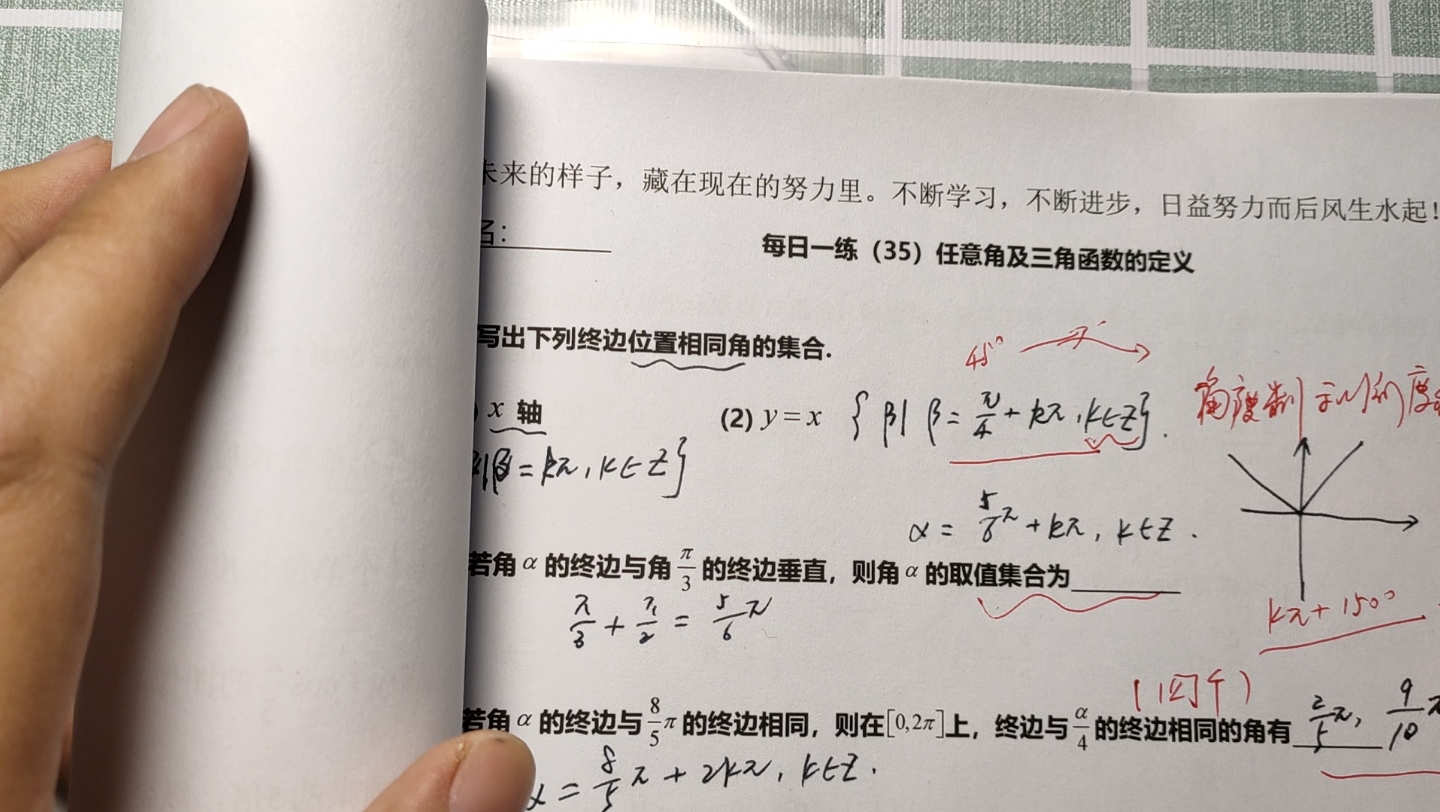 未来的样子，藏在现在的努力里。不断学习，不断进步，日益努力而后风生水起！
名：
每日一练（35）任意角及三角函数的定义
写出下列终边位置相同角的集合.
45°
) x 轴
(2) y = x { β | β = π/4 + kπ , k∈Z } .
角度制
|β = kπ , k∈Z }
α = 5/6 π + kπ , k∈Z .
若角 α 的终边与角 π/3 的终边垂直，则角 α 的取值集合为
π/3 + π/2 = 5/6 π
kπ + 150°
(四个)
若角 α 的终边与 8/5 π 的终边相同，则在[0,2π]上，终边与 α/4 的终边相同的角有 2/5 π, 9/10 π
α = 8/5 π + 2kπ , k∈Z .